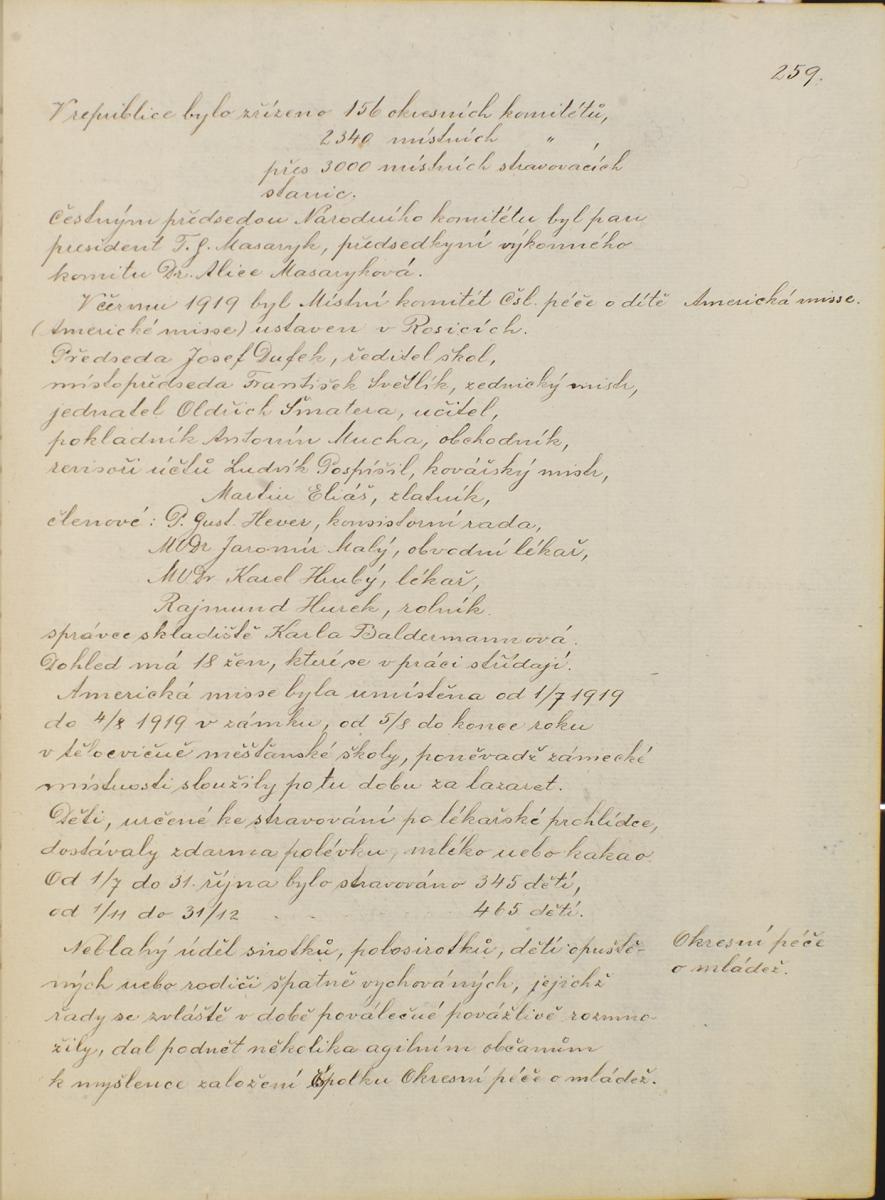 259.
V republice bylo zřízeno 156 okresních komitétů,
2340 místních " ,
přes 3000 místních stravovacích
stanic.
Čestným předsedou Národního komitétu byl pan
president T. G. Masaryk, předsedkyní výkonného
komitu Dr. Alice Masaryková.
V červnu 1919 byl Místní komitét Čsl. péče o dítě
Americká misse.
(Americké misse) ustaven v Rosicích.
Předseda Josef Dufek, ředitel škol,
místopředseda František Světlík, zednický mistr,
jednatel Oldřich Šmatera, učitel,
pokladník Antonín Mucha, obchodník,
revisoři účtů Ludvík Pospíšil, kovářský mistr,
Martin Eliáš, zlatník,
členové: P. Gust. Hever, konsistorní rada,
MUDr Jaromír Malý, obvodní lékař,
MUDr Karel Hrubý, lékař,
Rajmund Hurek, rolník.
správce skladiště Karla Baldermannová.
Dohled má 18 žen, které se v práci střídají.
Americká misse byla umístěna od 1/7 1919
do 4/8 1919 v zámku, od 5/8 do konce roku
v tělocvičně měšťanské školy, poněvadž zámecké
místnosti sloužily po tu dobu za lazaret.
Děti, určené ke stravování po lékařské prohlídce,
dostávaly zdarma polévku, mléko nebo kakao
Od 1/7 do 31. října bylo stravováno 345 dětí,
od 1/11 do 31/12 465 dětí.
Neblahý úděl sirotků, polosirotků, dětí opuště-
Okresní péče
o mládež.
ných nebo rodiči špatně vychováných, jejichž
řady se zvláště v době poválečné povážlivě rozmno-
žily, dal podnět několika agilním občanům
k myšlence založení Spolku Okresní péče o mládež.